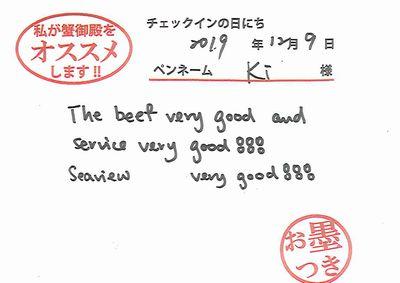 私が蟹御殿を
オススメ
します!!
チェックインの日にち
2019 年 12月 9日
ペンネーム Ki 様
The beef very good and
service very good!!!
Seaview very good!!!
お墨
つき